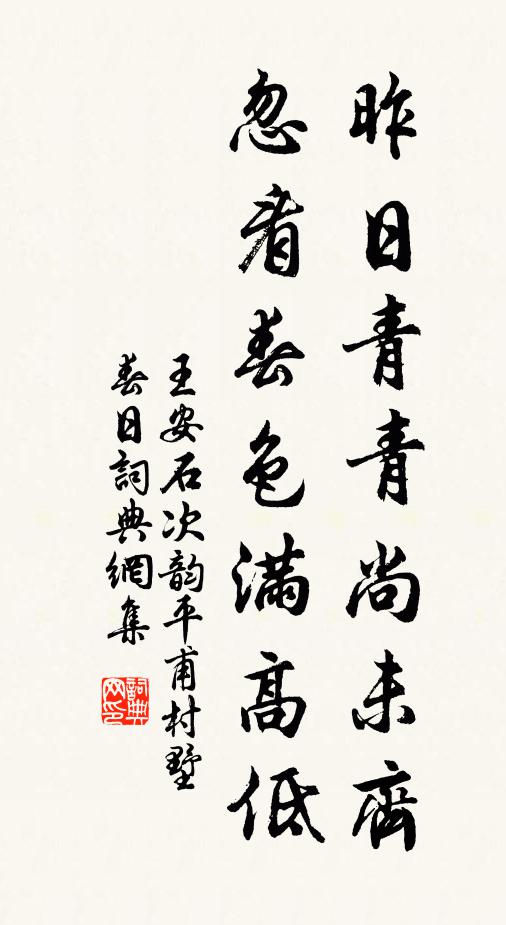 昨日青青尚未齊
忽看春色滿高低
王安石次韵平甫村墅
春日詞典網集
詞典网印